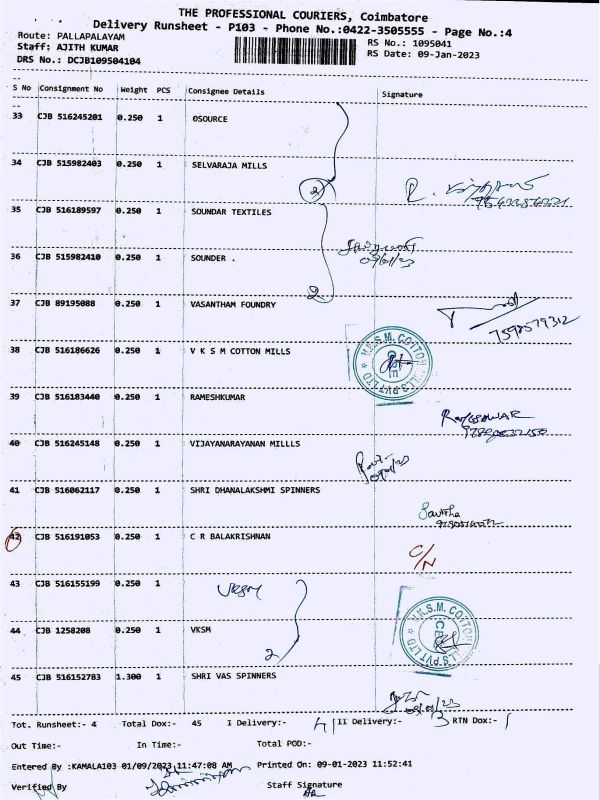 THE PROFESSIONAL COURIERS, Coimbatore
Delivery Runsheet - P103 - Phone No.:0422-3505555 - Page No.:4
Route: PALLAPALAYAM
Staff: AJITH KUMAR
DRS No.: DCJB109504104
RS No.: 1095041
RS Date: 09-Jan-2023
S No Consignment No Weight PCS Consignee Details Signature
33 CJB 516245201 0.250 1 OSOURCE
34 CJB 515982403 0.250 1 SELVARAJA MILLS
2
35 CJB 516189597 0.250 1 SOUNDAR TEXTILES
36 CJB 515982410 0.250 1 SOUNDER .
2
37 CJB 89195088 0.250 1 VASANTHAM FOUNDRY
7598579312
38 CJB 516186626 0.250 1 V K S M COTTON MILLS
V.K.S.M. COTTON MILLS PVT LTD
39 CJB 516183440 0.250 1 RAMESHKUMAR
40 CJB 516245148 0.250 1 VIJAYANARAYANAN MILLLS
41 CJB 516062117 0.250 1 SHRI DHANALAKSHMI SPINNERS
42 CJB 516191053 0.250 1 C R BALAKRISHNAN
C/N
43 CJB 516155199 0.250 1 VKSM
44 CJB 1258208 0.250 1 VKSM
2
V.K.S.M. COTTON MILLS PVT LTD
45 CJB 516152783 1.300 1 SHRI VAS SPINNERS
Tot. Runsheet:- 4 Total Dox:- 45 I Delivery:- 41 II Delivery:- 3 RTN Dox:- 1
Out Time:- In Time:- Total POD:-
Entered By :KAMALA103 01/09/2023 11:47:08 AM Printed On: 09-01-2023 11:52:41
Verified By Staff Signature